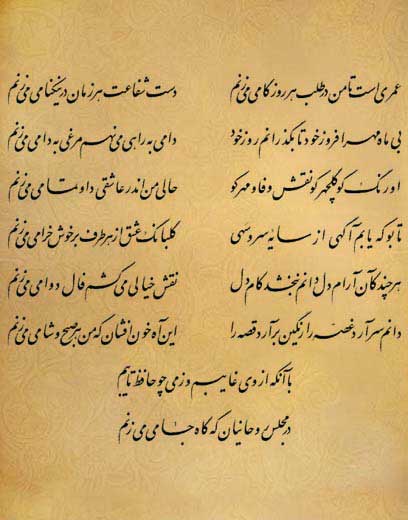 عمری است تا من در طلب هر روز گامی می‌زنم دست شفاعت هر زمان در نیکنامی می‌زنم
بی ماه مهر افروز خود تا بگذرانم روز خود دامی به راهی می‌نهم مرغی به دامی می‌زنم
اورنگ کو گلچهر کو نقش وفا و مهر کو حالی من اندر عاشقی داو تمامی می‌زنم
تا بو که یابم آگهی از سایه سرو سهی گلبانگ عشق از هر طرف بر خوش خرامی می‌زنم
هر چند کآن آرام دل دانم نبخشد کام دل نقش خیالی می‌کشم فال دوامی می‌زنم
دانم سر آرد غصه را رنگین بر آرد قصه را این آه خون افشان که من هر صبح و شامی می‌زنم
با آنکه از وی غایبم وز می چو حافظ تایبم
در مجلس روحانیان گه گاه جامی می‌زنم